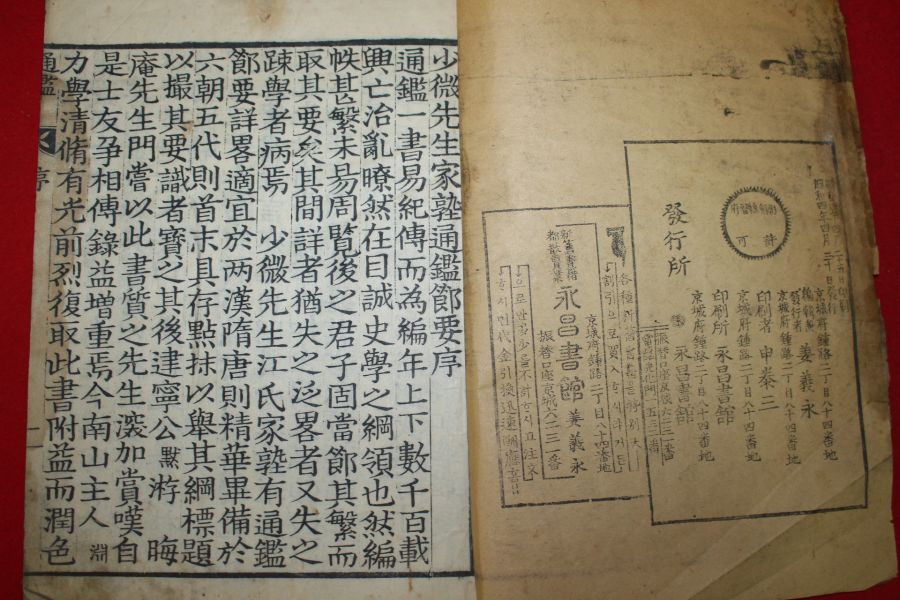 少微先生家塾通鑑節要序
通鑑一書易紀傳而為編年上下數千百載
興亡治亂暸然在目誠史學之綱領也然編
帙甚繁未昜周覽後之君子固當節其繁而
取其要矣其間詳者猶失之泛畧者又失之
踈學者病焉 少微先生江氏家塾有通鑑
節要詳畧適宜於两漢隋唐則精華畢備於
六朝五代則首末具存點抹以舉其綱標題
以撮其要識者寶之其後建寧公黙游晦
庵先生門嘗以此書質之先生深加賞嘆自
是士友爭相傳錄益增重焉今南山主人淵
力學清脩有光前烈復取此書附益而潤色
通鑑
序
許可
昭和四年四月
京城府鍾路二丁目八十四番地
發行者 姜義永
京城府鍾路二丁目八十四番地
印刷者 申泰三
京城府鍾路二丁目八十四番地
印刷所 永昌書舘
發行所
京城府鍾路二丁目八十四番地
永昌書舘
新舊書籍
都散賣業 永昌書舘 姜義永
京城府鍾路二丁目八十四番地
振替口座京城六二三一番